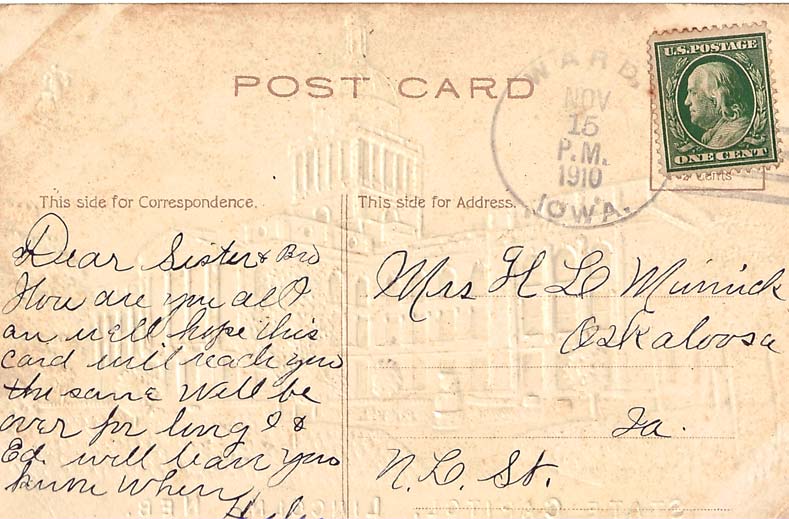 POST CARD
WARD,
NOV
15
P.M.
1910
IOWA.
U.S. POSTAGE
ONE CENT
This side for Correspondence.
This side for Address.
Dear Sister & Bro
How are you all I
am well hope this
card will reach you
the same Will be
over for long I &
Ed will lean you
know When
Mrs H L Minick
Oskaloosa
Ia.
N.L. St.
STATE CAPITOL, LINCOLN, NEB.